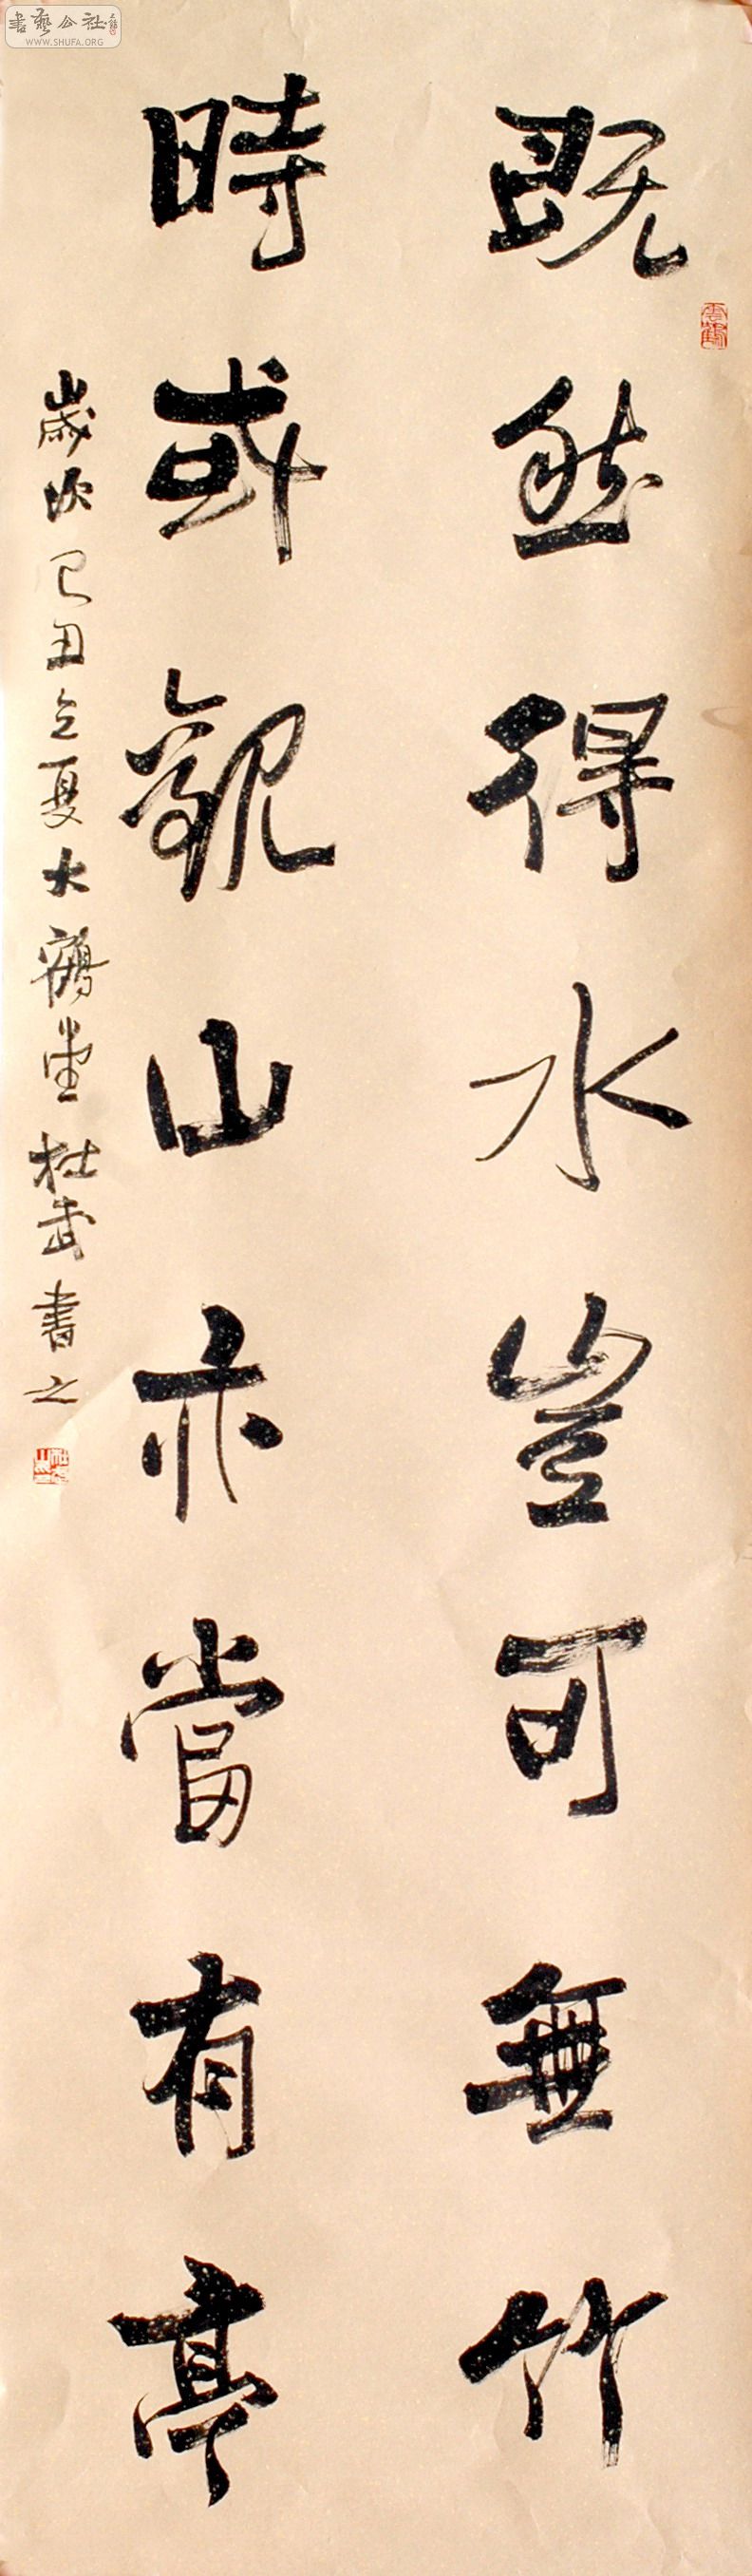 既然得水豈可無竹
時或觀山亦當有亭
歲次己丑立夏大鶴堂杜武書之
書藝公社
WWW.SHUFA.ORG